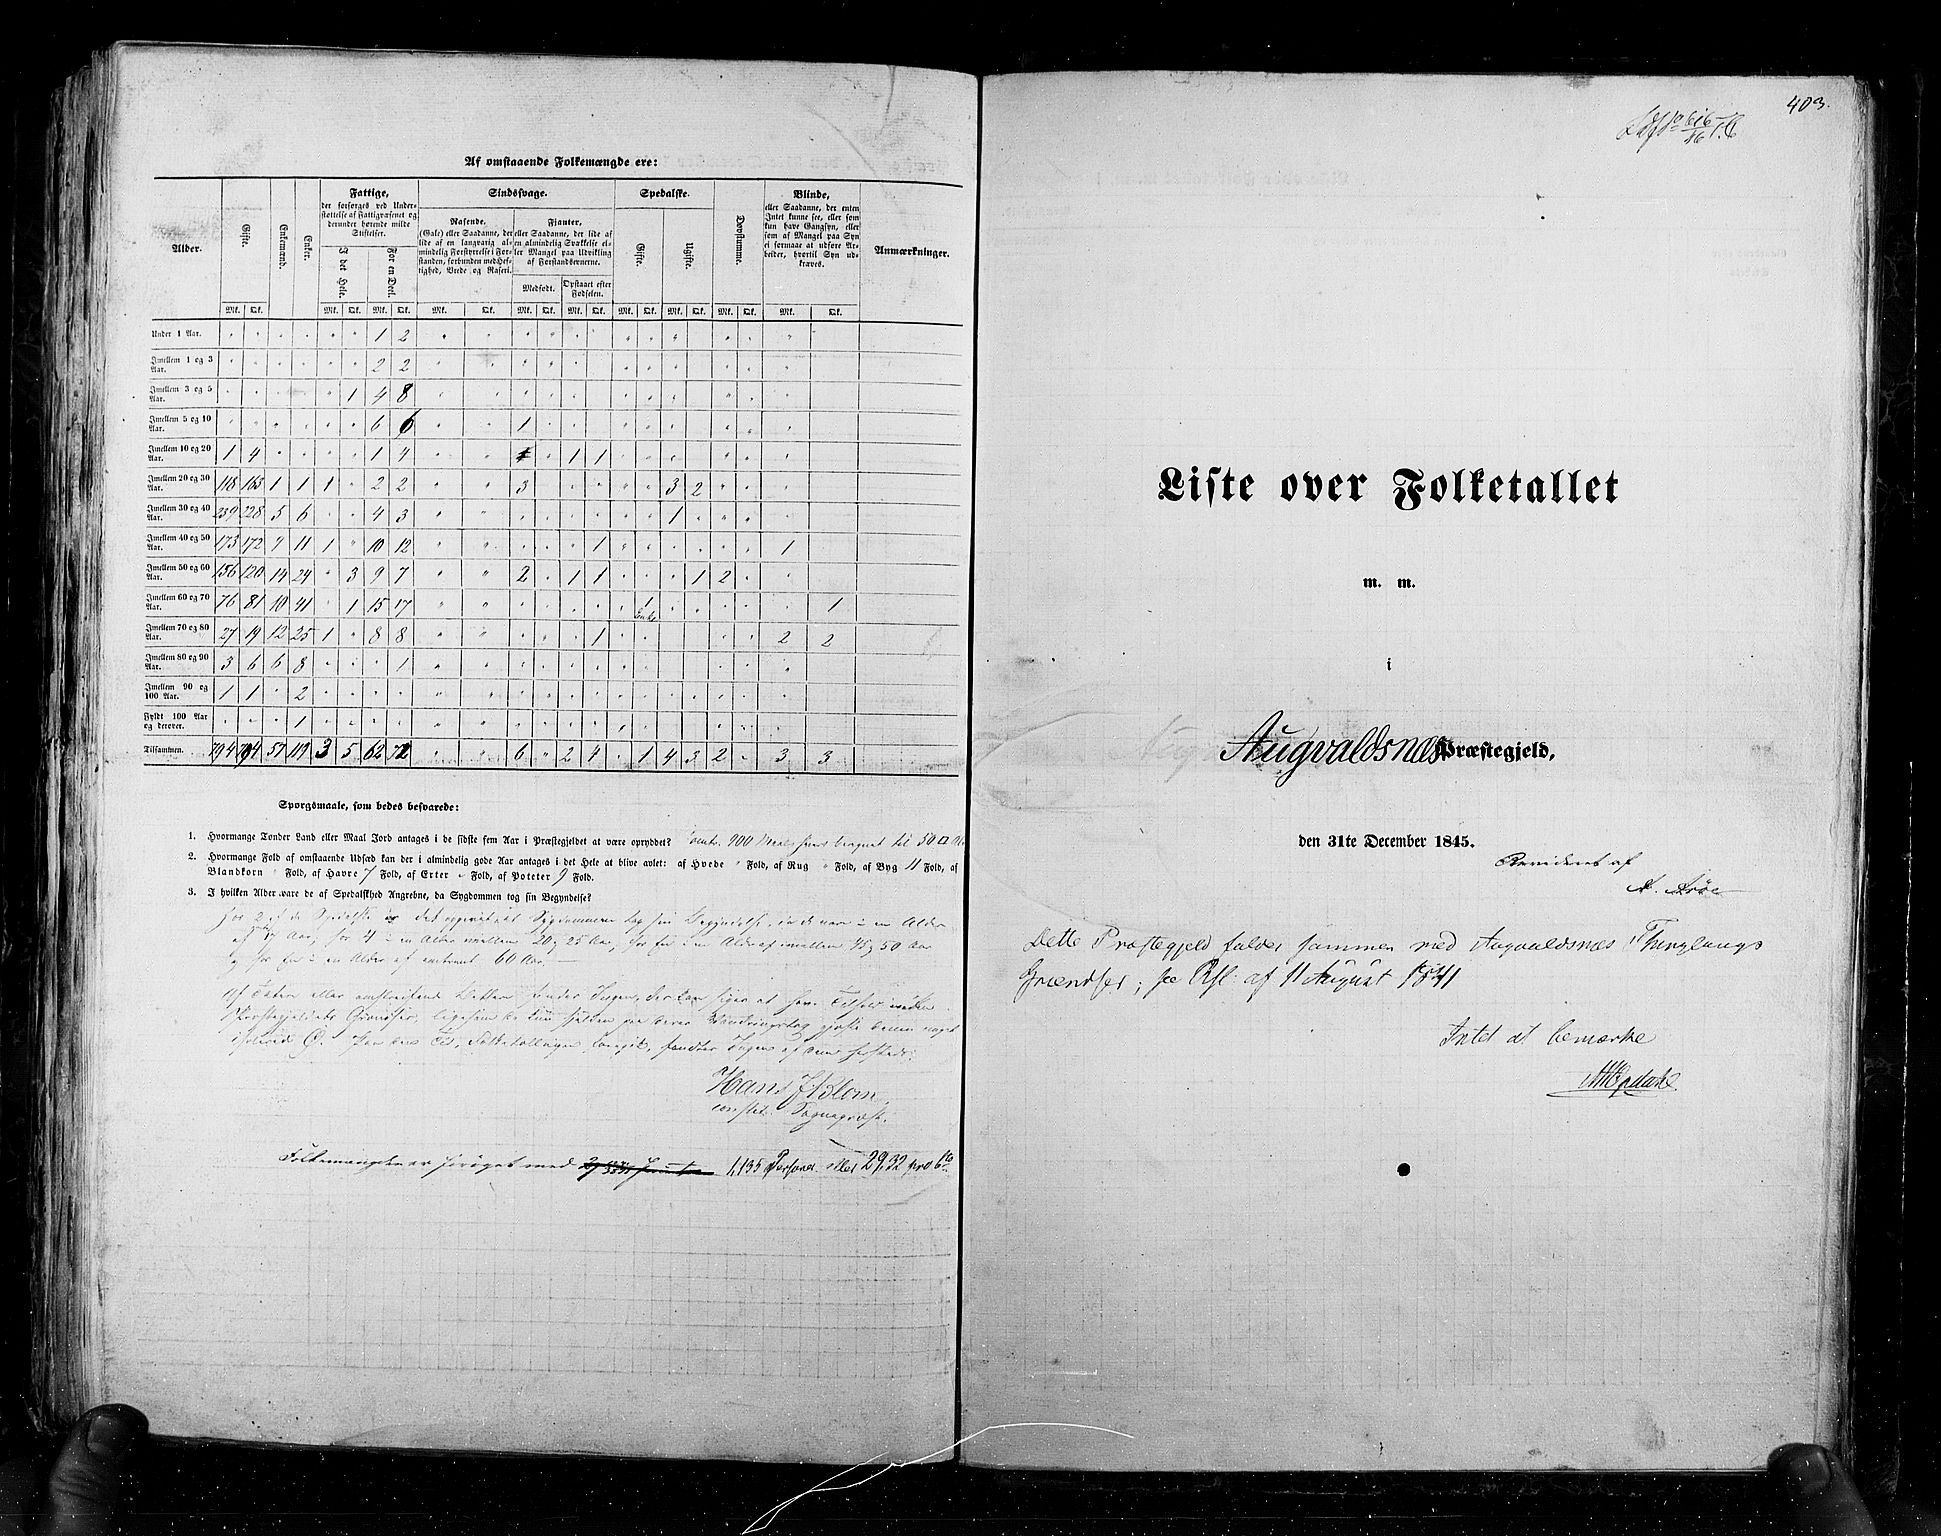 Af omstaaende Folkemængde ere:
Alder. Gifte. Enkemænd. Enker. Fattige, Sindssvage. Spedalske. Døvstumme. Blinde, Anmærkninger.
der forsørges ved Under-
støttelse af Fattigvæsenet og
derunder hørende milde
Stiftelser.
I det Hele. For en Deel.
Rasende.
(Gale) eller Saadanne, der
lide af en langvarig al-
mindelig Forstyrrelse i For-
standen, forbunden med Hef-
tighed, Vrede og Raseri.
Fjanter,
eller Saadanne, der lide af
en almindelig Svækkelse el-
ler Mangel paa Udvikling
af Forstandsevnerne.
Medfødt. Opstaaet efter
Fødselen.
Gifte. Ugifte.
eller Saadanne, der enten
Intet kunne see, eller som
kun have Gangsyn, eller
som af Mangel paa Syn
ei formaae at udføre Ar-
beider, hvortil Syn ud-
kræves.
Mk. Qk. Mk. Qk. Mk. Qk. Mk. Qk. Mk. Qk. Mk. Qk. Mk. Qk. Mk. Qk. Mk. Qk. Mk. Qk.
Under 1 Aar. " " " " " " 1 2
Imellem 1 og 3 Aar. " " " " " " 2 2
Imellem 3 og 5 Aar. " " " " " 1 4 8
Imellem 5 og 10 Aar. " " " " " " 6 6 " " 1
Imellem 10 og 20 Aar. 1 4 " " " " 1 4 " " " 1 1
Imellem 20 og 30 Aar. 118 163 1 1 1 " 2 2 " " 3 " " " " " 3 2
Imellem 30 og 40 Aar. 239 228 5 6 " " 4 3 " " " " " " " " 1
Imellem 40 og 50 Aar. 173 172 9 11 1 " 10 12 " " " " " 1 " " " " " " 1
Imellem 50 og 60 Aar. 156 120 14 24 " 3 9 7 " " 2 " 1 1 " " " 1 2
Imellem 60 og 70 Aar. 76 81 10 41 " 1 15 17 " " " " " " " 1 " " " " " 1
Enke
Imellem 70 og 80 Aar. 27 19 12 25 1 " 8 8 " " " " " 1 2 2
Imellem 80 og 90 Aar. 3 6 6 8 " " " 1
Imellem 90 og 100 Aar. 1 1 " 2
Fyldt 100 Aar og derover. " " " 1
Tilsammen. 794 794 57 119 3 5 62 72 " " 6 " 2 4 " 1 4 3 2 " 3 3
Spørgsmaale, som bedes besvarede:
1. Hvormange Tønder Land eller Maal Jord antages i de sidste fem Aar i Præstegjeldet at være opryddet? 900 Maal
2. Hvormange Fold af omstaaende Udsæd kan der i almindelig gode Aar antages i det Hele at blive avlet: af Hvede " Fold, af Rug " Fold, af Byg 4 Fold, af
Blandkorn " Fold, af Havre 7 Fold, af Erter " Fold, af Poteter 9 Fold.
3. I hvilken Alder vare de af Spedalskhed Angrebne, da Sygdommen tog sin Begyndelse?
For 2 af de Spedalske er det opgivet at Sygdommen tog sin Begyndelse, da de vare i en Alder
af Aar, for 4 i en Alder imellem 20 og 25 Aar, for En i en Alder af imellem 45 og 50 Aar
og for En i en Alder af omtrent 60 Aar. —
Af Tatere eller omstreifende findes Ingen, der kan siges at have Tilhold inden
Præstegjeldets Grændser, ligesom de kun sjelden paa deres Vandringstog gjæste denne noget
Ø. Paa den Tid, Folketællingen foregik, fandtes Ingen af dem herstede.
Hans J Blom
const. Sognepræst.
Folkemængden er forøget med 1,135 Personer eller 29,32 pro Cto
403.
Liste over Folketallet
m. m.
i
Augvaldsnæs Præstegjeld,
den 31te December 1845.
Revideret af
Dette Præstegjeld falder sammen med Augvaldsnæs Thinglaugs
Grændser; see Rsl. af 11 August 1841
Intet at bemærke